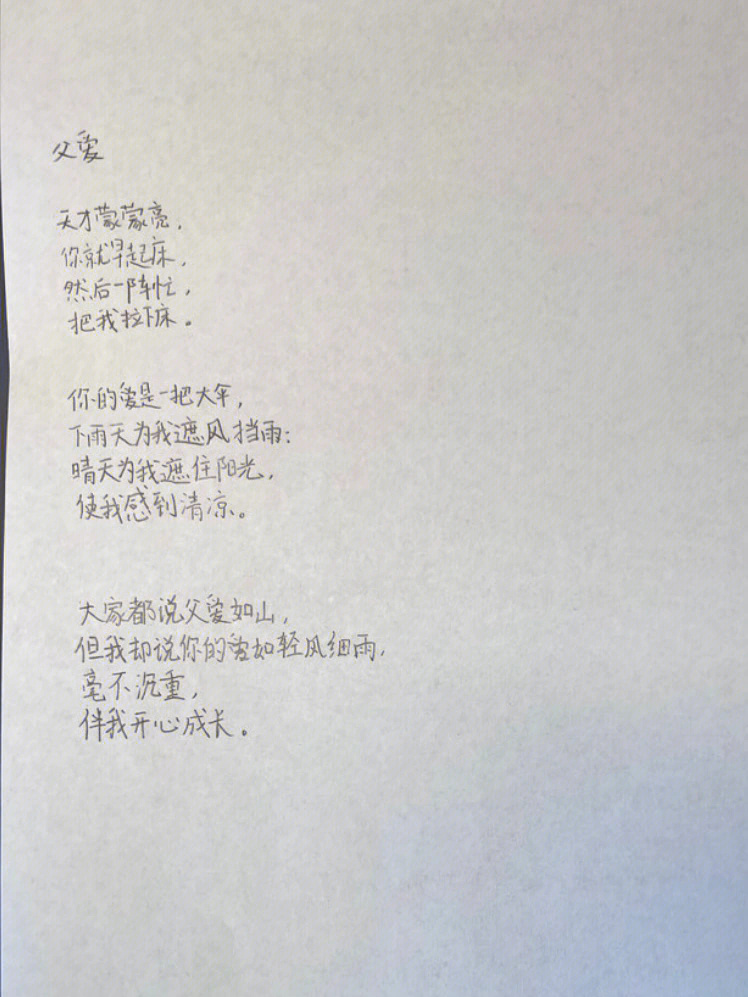 父爱
天才蒙蒙亮，
你就早起床，
然后一阵忙，
把我拉下床。
你的爱是一把大伞，
下雨天为我遮风挡雨；
晴天为我遮住阳光，
使我感到清凉。
大家都说父爱如山，
但我却说你的爱如轻风细雨，
毫不沉重，
伴我开心成长。